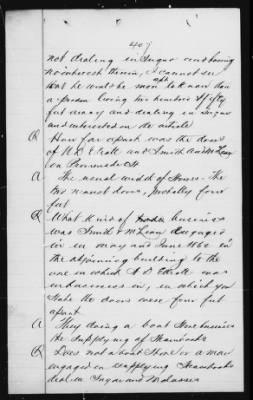 407
not dealing in Sugar and having
no interest therein, I cannot see
that he would be more apt to know than
a person living two hundred & fifty
feet away and dealing in Sugar
and interested in the article
Q How far apart was the doors
of and Smith & McLean
on St
A The usual width of House - The
was next door, probably four
feet
Q What kind of business
was Smith & McLean engaged
in in may and June 1862 in
the adjoining building to the
one in which was
in business in, in which you
state the doors were four feet
apart
A They doing a boat Store business
the Supplying of Steamboats
Q Does not a boat Store or a man
engaged in supplying Steamboats
deal in Sugar and Molasses